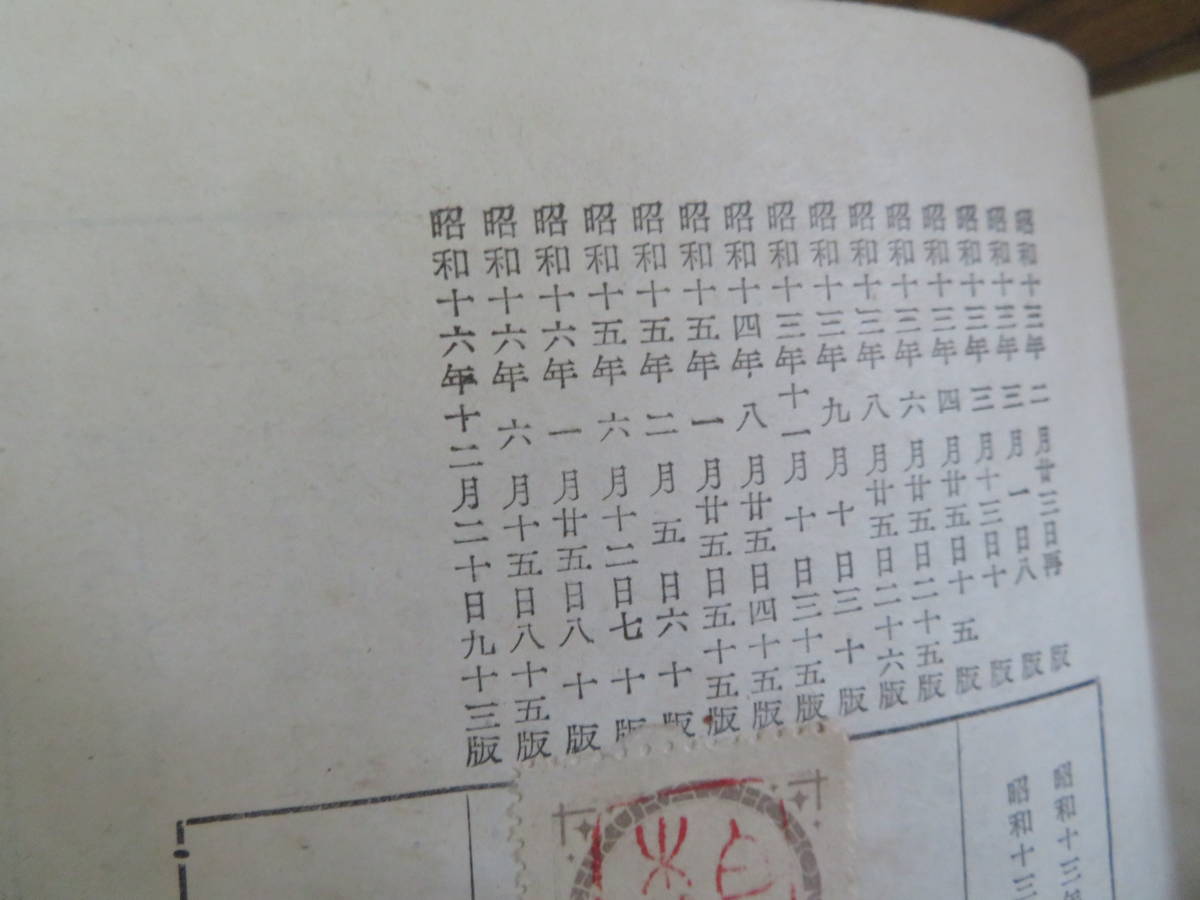 昭和十三年二月廿三日再版
昭和十三年三月一日八版
昭和十三年三月十三日十版
昭和十三年四月廿五日十五版
昭和十三年六月廿五日二十五版
昭和十三年八月廿五日二十六版
昭和十三年九月十日三十版
昭和十三年十一月十日三十五版
昭和十四年八月廿五日四十五版
昭和十五年一月廿五日五十五版
昭和十五年二月五日六十版
昭和十五年六月十二日七十版
昭和十六年一月廿五日八十版
昭和十六年六月十五日八十五版
昭和十六年十二月二十日九十三版
昭和十三年
昭和十三